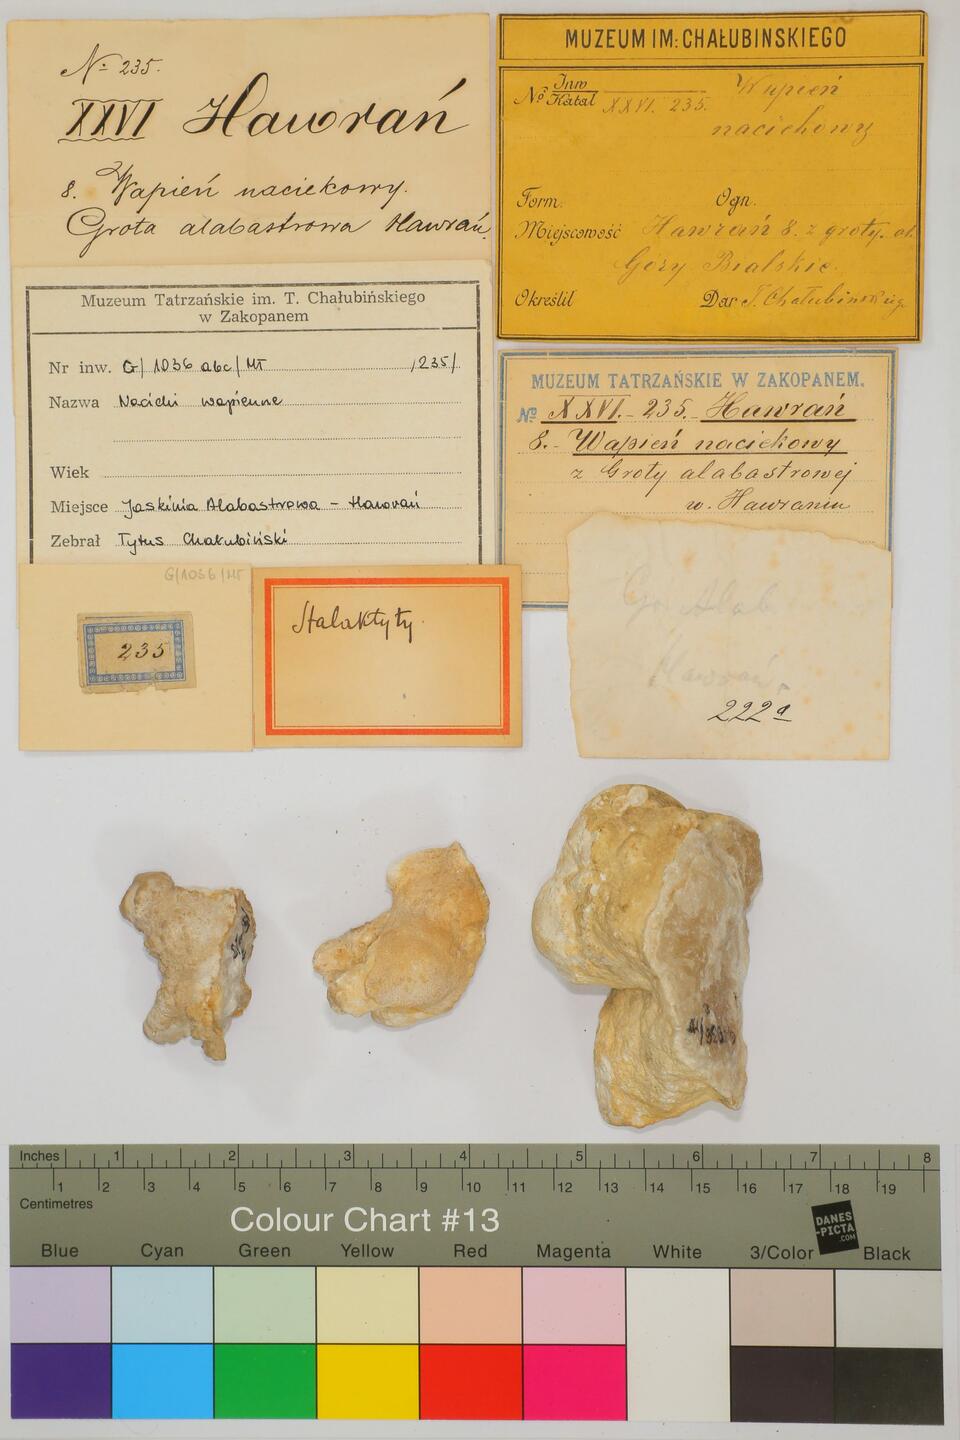 № 235.
XXVI Hawrań
8. Wapień naciekowy.
Grota alabastrowa Hawrań.
MUZEUM IM: CHAŁUBINSKIEGO
№ Inw Katal XXVI. 235. Wapień
naciekowy
Form. Ogn.
Miejscowość Hawrań 8. z groty. al.
Góry Bialskie.
Określił Dar T. Chałubińskieg
Muzeum Tatrzańskie im. T. Chałubińskiego
w Zakopanem
Nr inw. G/1036 abc/MT /235/
Nazwa Nacieki wapienne
Wiek
Miejsce Jaskinia Alabastrowa - Hawrań
Zebrał Tytus Chałubiński
MUZEUM TATRZAŃSKIE W ZAKOPANEM.
№ XXVI. - 235. Hawrań
8. - Wapień naciekowy
z Groty alabastrowej
w. Hawraniu
G/1036/MT
235
Stalaktyty.
Gr. Alab
Hawrań.
222a
Inches 1 2 3 4 5 6 7 8
1 2 3 4 5 6 7 8 9 10 11 12 13 14 15 16 17 18 19
Centimetres
Colour Chart #13
DANES
-PICTA
.COM
Blue Cyan Green Yellow Red Magenta White 3/Color Black